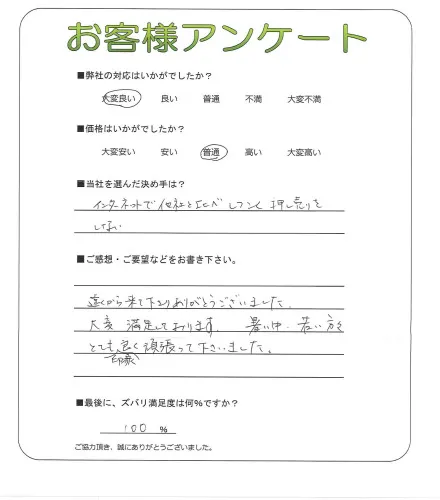 お客様アンケート
■弊社の対応はいかがでしたか？
大変良い 良い 普通 不満 大変不満
■価格はいかがでしたか？
大変安い 安い 普通 高い 大変高い
■当社を選んだ決め手は？
インターネットで他社と比べ しつこく押し売りを
しない
■ご感想・ご要望などをお書き下さい。
遠くから来て下さりありがとうございました。
大変 満足しております。 暑い中、若い方々
とても良く頑張って下さいました。
■最後に、ズバリ満足度は何%ですか？
100 %
ご協力頂き、誠にありがとうございました。